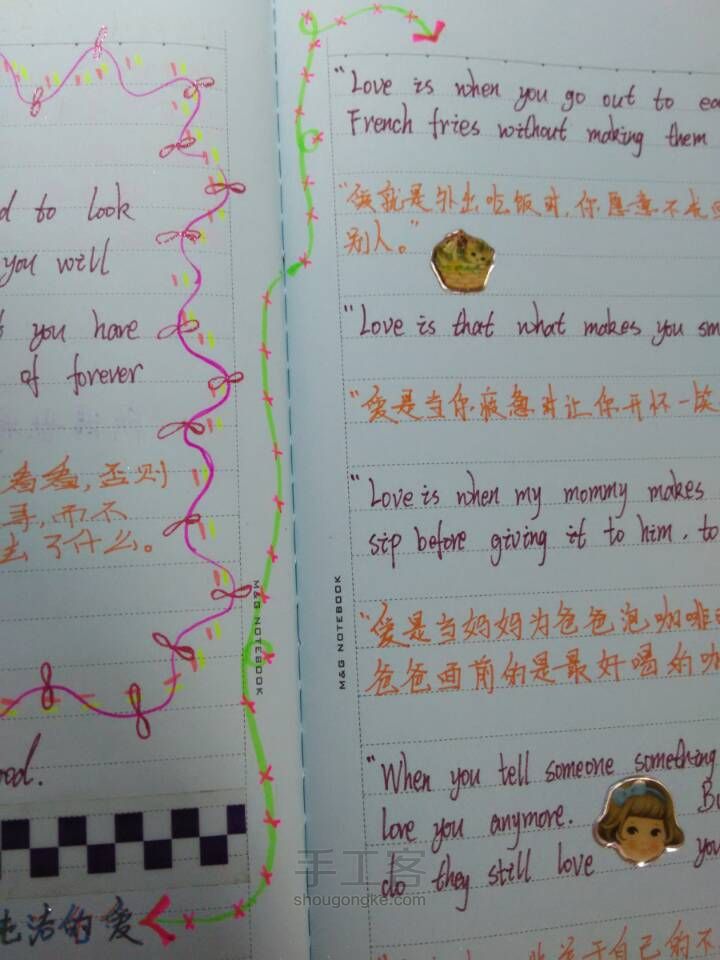 d to look
you will
you have
of forever
看看,否则
寻,而不
去了什么。
ood.
纯洁的爱
M&G NOTEBOOK
"Love is when you go out to ea
French fries without making them
"爱就是外出吃饭时,你愿意不
别人。"
"Love is that what makes you sm
"爱是当你疲惫时让你开怀一
"Love is when my mommy makes
sip before giving it to him, to
M&G NOTEBOOK
"爱是当妈妈为爸爸泡咖啡
爸爸面前的是最好喝的咖
"When you tell someone something
love you anymore. Bu
do they still love you
于自己的不
手工客
shougongke.com